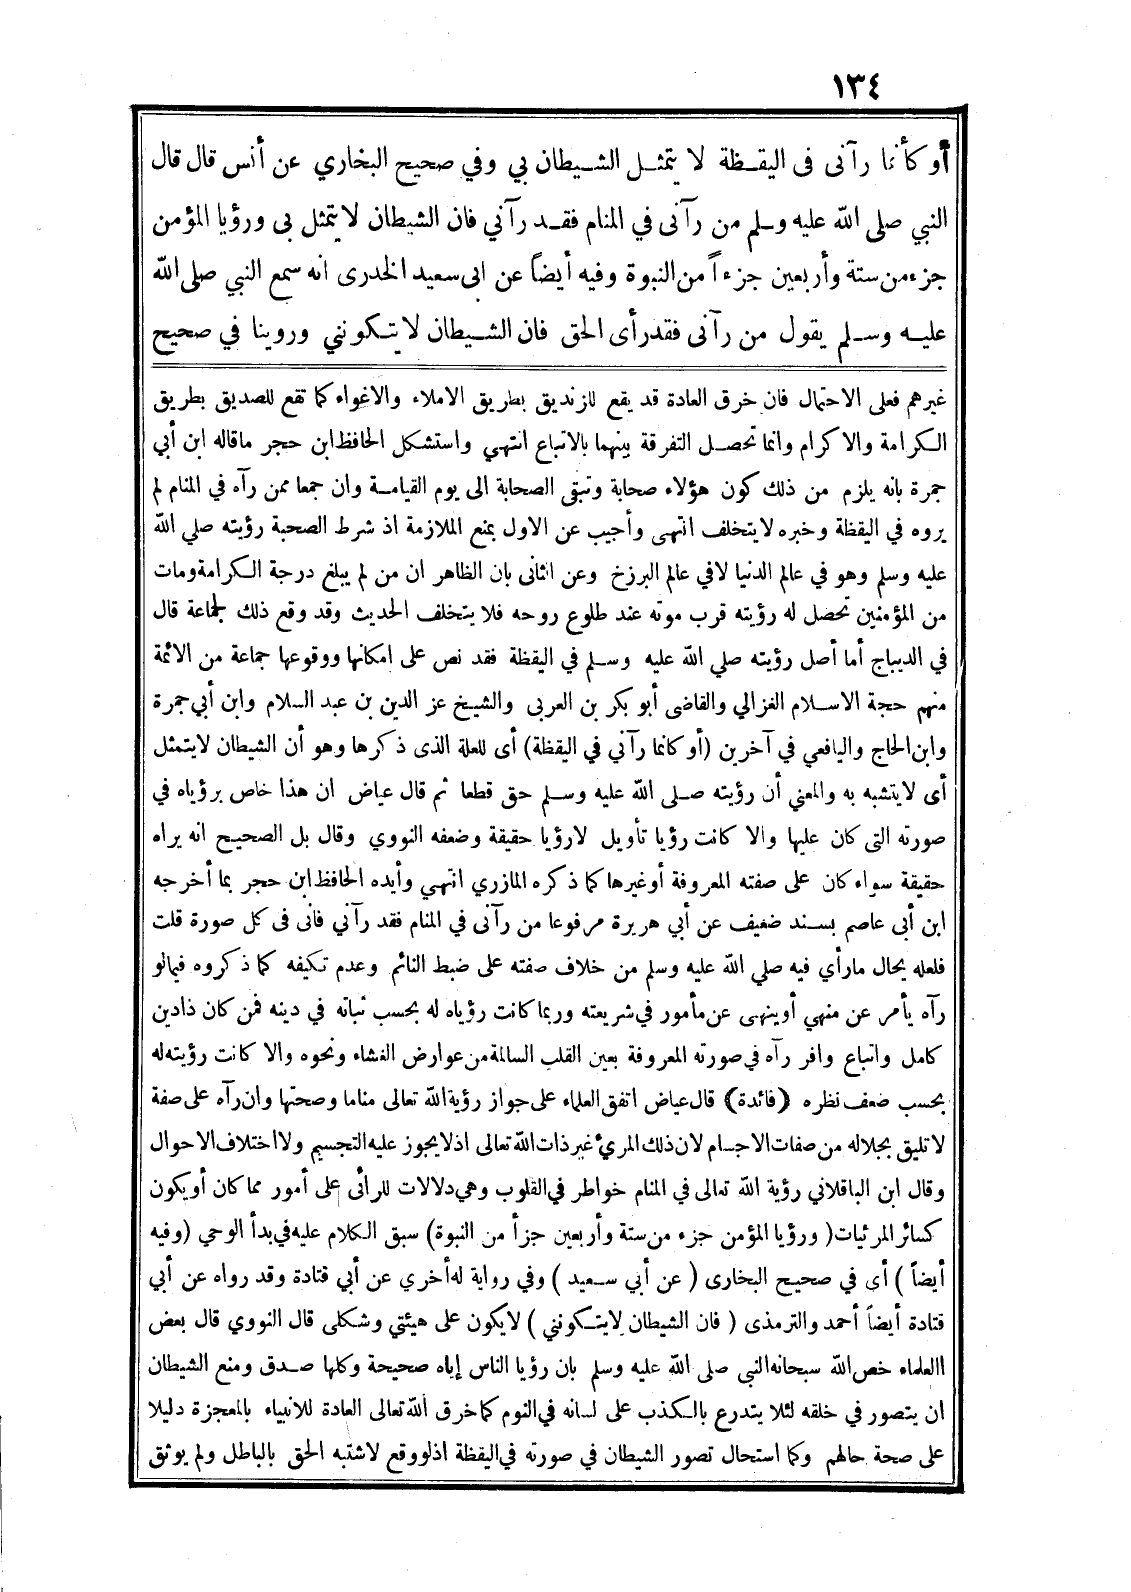 ١٣٤
أو كأنما رآنى فى اليقـظة لا يتمثـل الشـيطان بي وفي صحيح البخاري عن أنس قال قال
النبي صلى الله عليه وسلم من رآنى في المنام فقـد رآني فان الشيطان لا يتمثل بى ورؤيا المؤمن
جزء من ستة وأربعين جزءاً من النبوة وفيه أيضاً عن ابى سعيد الخدرى انه سمع النبي صلى الله
عليـه وسـلم يقول من رآنى فقد رأى الحق فان الشـيطان لا يتـكونني وروينا في صحيح
غيرهم فعلى الاحتمال فان خرق العادة قد يقع للزنديق بطريق الاملاء والاغواء كما تقع للصديق بطريق
الـكرامة والاكرام وانما تحصـل التفرقة بينهما بالاتباع انتهي واستشكل الحافظ ابن حجر ماقاله ابن أبي
جمرة بانه يلزم من ذلك كون هؤلاء صحابة وتبقى الصحابة الى يوم القيامـة وان جمعا ممن رآه في المنام لم
يروه في اليقظة وخبره لا يتخلف انتهى وأجيب عن الاول بمنع الملازمة اذ شرط الصحبة رؤيته صلي الله
عليه وسلم وهو في عالم الدنيا لافي عالم البرزخ وعن الثانى بان الظاهر ان من لم يبلغ درجة الـكرامة ومات
من المؤمنين تحصل له رؤيته قرب موته عند طلوع روحه فلا يتخلف الحديث وقد وقع ذلك لجماعة قال
في الديباج أما أصل رؤيته صلي الله عليه وسـلم في اليقظة فقد نص على امكانها ووقوعها جماعة من الائمة
منهم حجة الاسـلام الغزالي والقاضى أبو بكر بن العربى والشيخ عز الدين بن عبد السلام وابن أبي جمرة
وابن الحاج واليافعي في آخرين (أو كانما رآني في اليقظة) أى للعلة الذى ذكرها وهو أن الشيطان لا يتمثل
أى لا يتشبه به والمعني أن رؤيته صـلى الله عليه وسـلم حق قطعا ثم قال عياض ان هذا خاص برؤياه في
صورته التى كان عليها والا كانت رؤيا تأويل لارؤيا حقيقة وضعفه النووي وقال بل الصحيح انه يراه
حقيقة سواء كان على صفته المعروفة أو غيرها كما ذكره المازري انتهي وأيده الحافظ ابن حجر بما أخرجه
ابن أبى عاصم بسـند ضعيف عن أبي هريرة مرفوعا من رآنى في المنام فقد رآني فانى فى كل صورة قلت
فلعله يحال مارأي فيه صلي الله عليه وسلم من خلاف صفته على ضبط النائم وعدم تكيفه كما ذكروه فيما لو
رآه يأمر عن منهي أو ينهى عن مأمور في شريعته وربما كانت رؤياه له بحسب ثباته في دينه فمن كان ذادين
كامل واتباع وافر رآه في صورته المعروفة بعين القلب السالمة من عوارض الغشاء ونحوه والا كانت رؤيته له
بحسب ضعف نظره (فائدة) قال عياض اتفق العلماء على جواز رؤية الله تعالى مناما وصحتها وان رآه على صفة
لا تليق بجلاله من صفات الاجسام لان ذلك المرئ غير ذات الله تعالى اذ لا يجوز عليه التجسيم ولا اختلاف الاحوال
وقال ابن الباقلاني رؤية الله تعالى في المنام خواطر في القلوب وهي دلالات للرأى على أمور مما كان أو يكون
كسائر المرئيات( ورؤيا المؤمن جزء من ستة وأربعين جزأ من النبوة) سبق الـكلام عليه في بدأ الوحي (وفيه
أيضاً ) أى في صحيح البخارى ( عن أبي سـعيد ) وفي رواية له أخري عن أبي قتادة وقد رواه عن أبي
قتادة أيضاً أحمد والترمذى ( فان الشيطان لا يتـكونني ) لا يكون على هيئتي وشكلى قال النووي قال بعض
االعلماء خص الله سبحانه النبي صلى الله عليه وسلم بان رؤيا الناس إياه صحيحة وكلها صـدق ومنع الشيطان
ان يتصور في خلقه لئلا يتدرع بالـكذب على لسانه في النوم كما خرق الله تعالى العادة للانبياء بالمعجزة دليلا
على صحة حالهم وكما استحال تصور الشيطان في صورته في اليقظة اذ لو وقع لاشتبه الحق بالباطل ولم يوثق